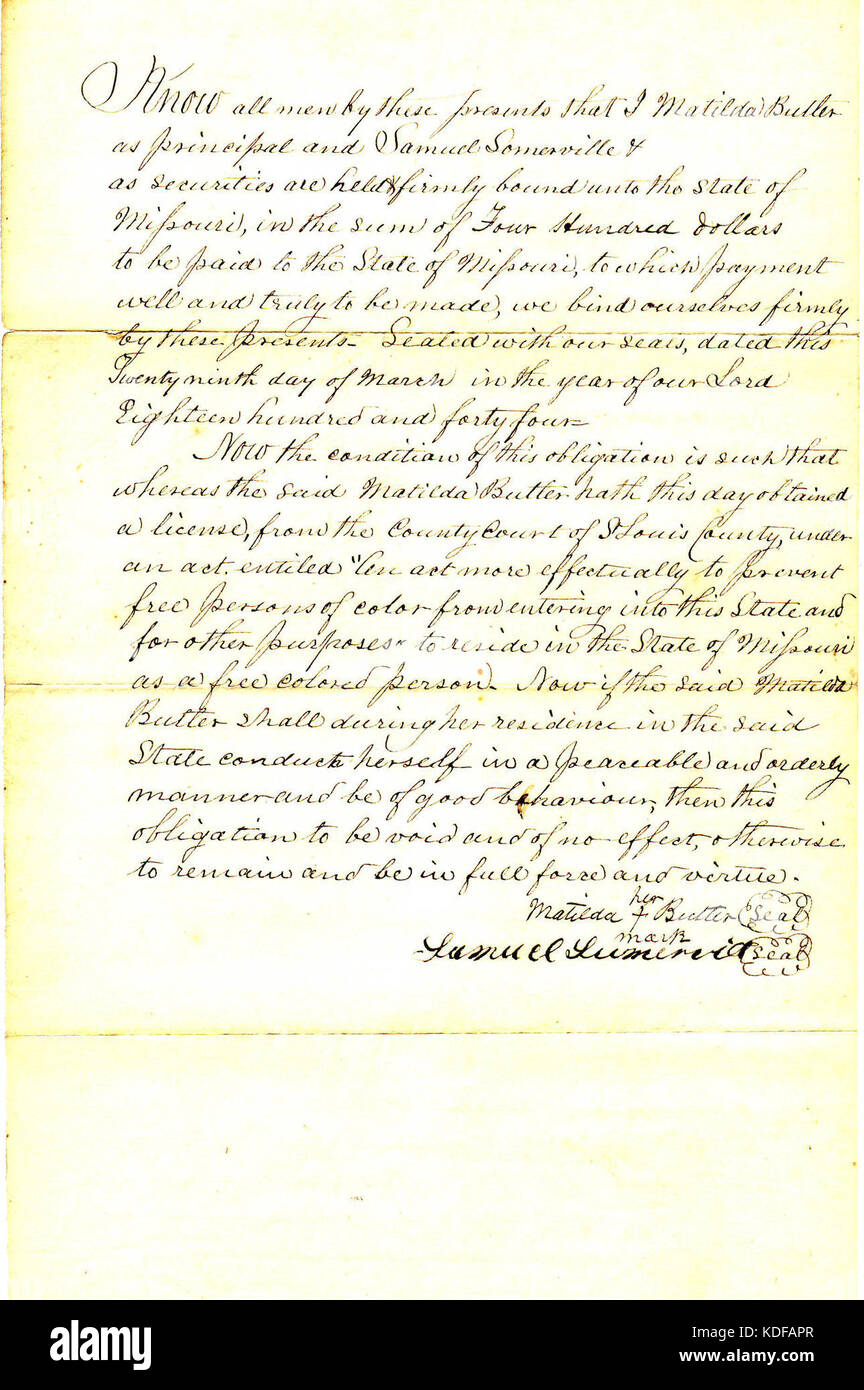 Know all men by these presents that I Matilda Butler
as principal and Samuel Somerville &
as securities are held & firmly bound unto the State of
Missouri, in the sum of Four Hundred Dollars
to be paid to the State of Missouri, to which payment
well and truly to be made, we bind ourselves firmly
by these presents - Sealed with our seals, dated this
Twenty ninth day of March in the year of our Lord
Eighteen hundred and forty four -
Now the condition of this obligation is such that
whereas the said Matilda Butler hath this day obtained
a license, from the County Court of St Louis County, under
an act. entiled "An act more effectually to prevent
free persons of color from entering into this State and
for other purposes" to reside in the State of Missouri
as a free colored person. Now if the said Matilda
Butler shall during her residence in the said
State conduct herself in a peaceable and orderly
manner and be of good behaviour, then this
obligation to be void and of no effect, otherwise
to remain and be in full force and virtue.
her
Matilda + Butler (Seal)
mark
Samuel (Seal)
a alamy stock photo
alamy
Image ID: KDFAPR
www.alamy.com